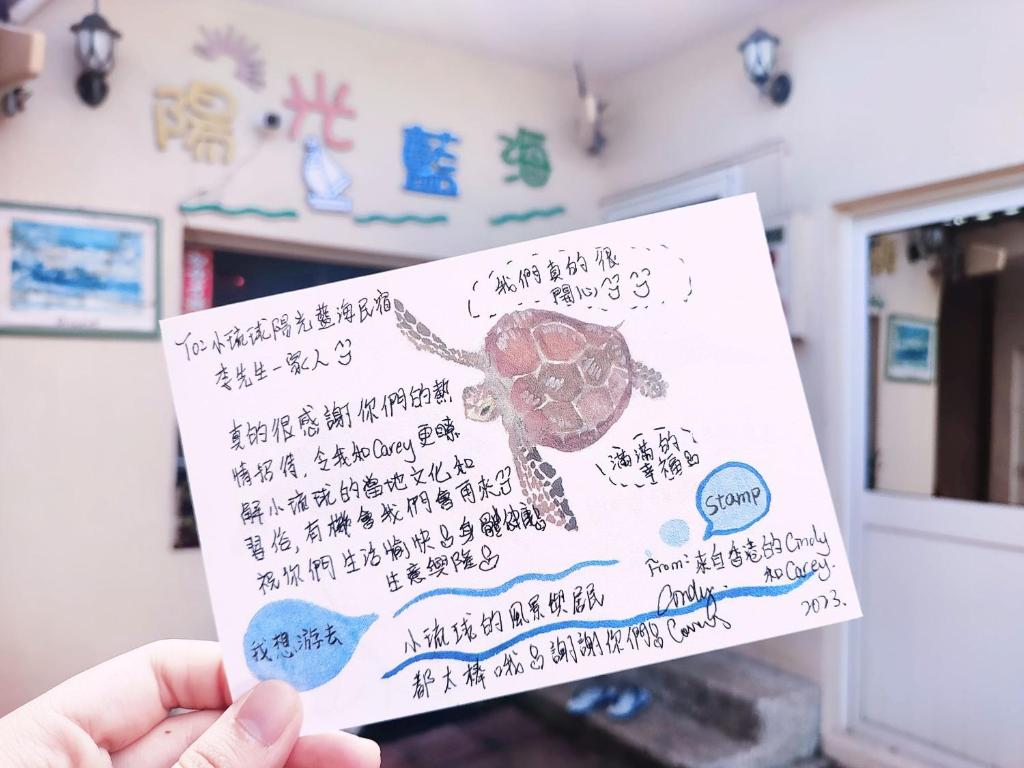 陽光藍海
我們真的很
開心
To: 小琉球陽光藍海民宿
李先生一家人
真的很感謝你們的熱
情招待，令我和Carey更瞭
解小琉球的當地文化和
習俗，有機會我們會再來
祝你們生活愉快 身體健康
生意興隆
滿滿的
幸福
stamp
From: 來自香港的Cindy
和Carey.
Cindy
Carey
2023.
我想游去
小琉球的風景與居民
都太棒哦 謝謝你們